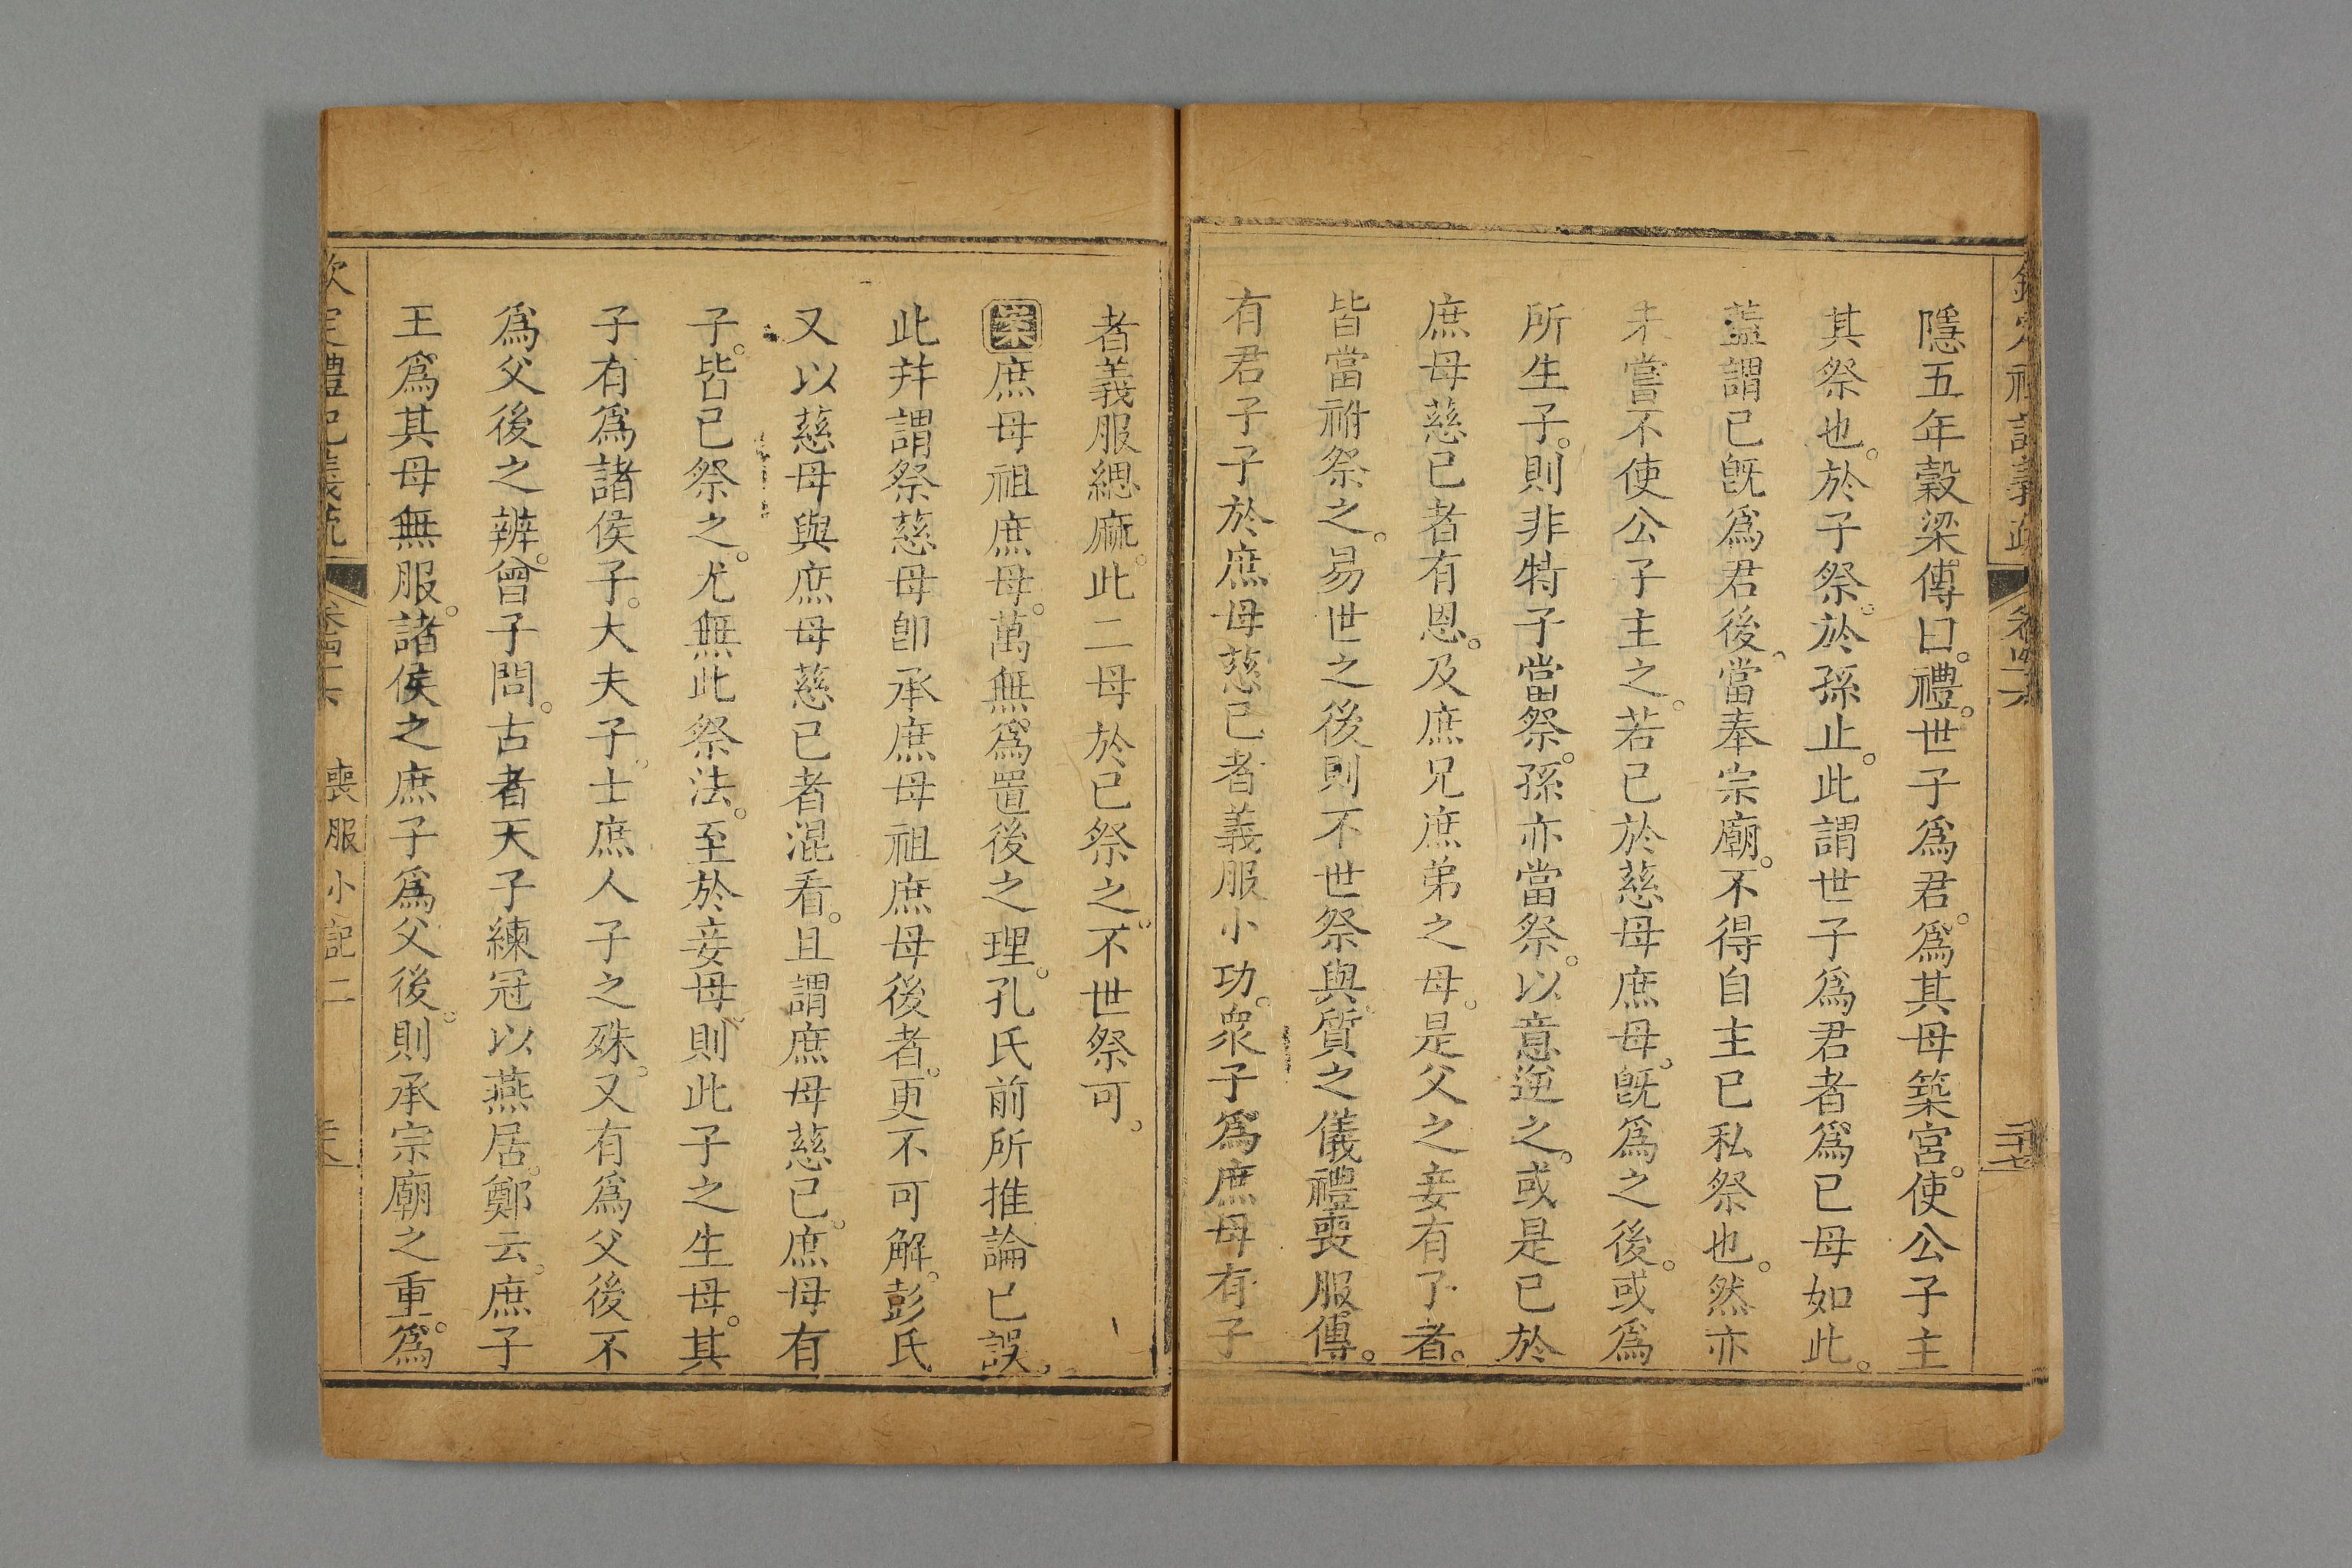 隱五年穀梁傳曰。禮。世子爲君。爲其母築宮。使公子主
其祭也。於子祭。於孫止。此謂世子爲君者爲已母如此。
蓋謂已旣爲君後。當奉宗廟。不得自主已私祭也。然亦
未嘗不使公子主之。若已於慈母庶母。旣爲之後。或爲
所生子。則非特子當祭。孫亦當祭。以意逆之。或是已於
庶母慈已者有恩。及庶兄庶弟之母。是父之妾有子者。
皆當祔祭之。易世之後則不世祭與。質之儀禮喪服傳。
有君子子於庶母慈已者義服小功。衆子爲庶母有子
者義服緦麻。此二母於已祭之。不世祭可。
案庶母祖庶母。萬無爲置後之理。孔氏前所推論已誤。
此幷謂祭慈母卽承庶母祖庶母後者。更不可解。彭氏
又以慈母與庶母慈已者混看。且謂庶母慈已。庶母有
子。皆已祭之。尤無此祭法。至於妾母。則此子之生母。其
子有爲諸侯子。大夫子。士庶人子之殊。又有爲父後不
爲父後之辨。曾子問。古者天子練冠以燕居。鄭云。庶子
王爲其母無服。諸侯之庶子爲父後。則承宗廟之重。爲
欽定禮記義疏 卷四十六 喪服小記二